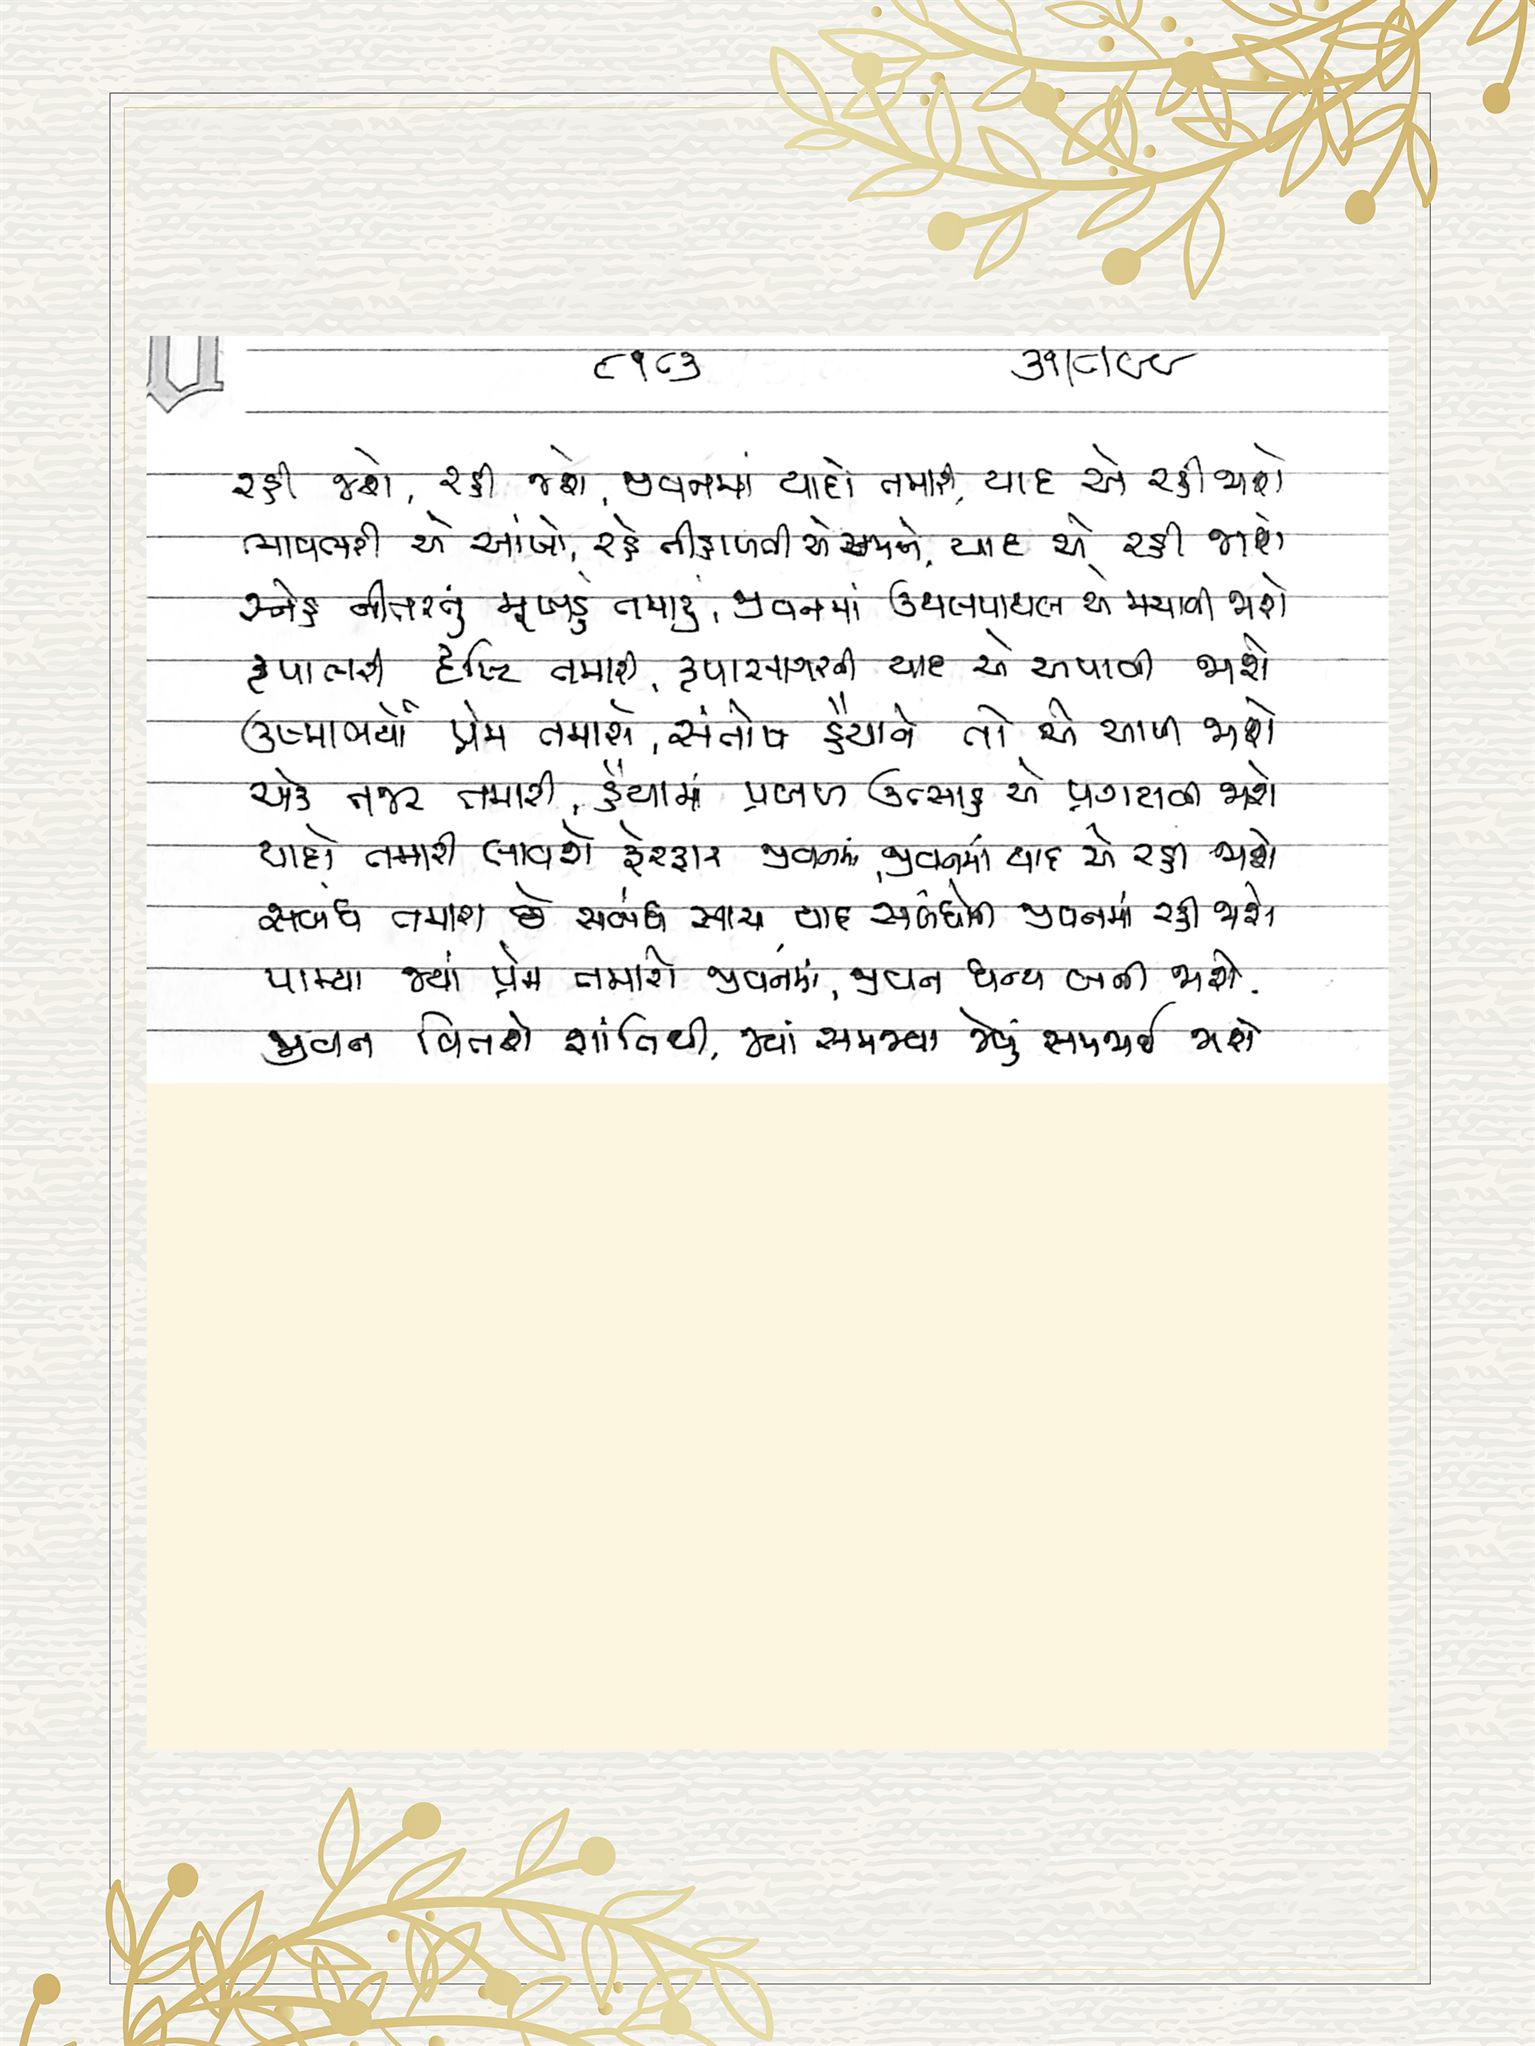 ૯૧૮૩ ૩૧/૮/૯૯
રહી જશે, રહી જશે, જીવનમાં યાદો તમારી, યાદ એ રહી જાશે
ભાવભરી એ આંખો, રહે નીહાળતી એ સમયે, યાદ એ રહી જાશે
સ્નેહ નીતરતું મુખડું તમારું, જીવનમાં ઉથલપાથલ એ મચાવી જાશે
કૃપાભરી દૃષ્ટિ તમારી, કૃપાસાગરની યાદ એ અપાવી જાશે
ઉષ્માભર્યો પ્રેમ તમારો, સંતોષ હૈયાને તો એ આપી જાશે
એક નજર તમારી, હૈયામાં પ્રબળ ઉત્સાહ એ પ્રગટાવી જાશે
યાદો તમારી લાવશે ફેરફાર જીવનમાં, જીવનમાં યાદ એ રહી જાશે
સબંધ તમારા છે સબંધ સાચા, યાદ સબંધોની જીવનમાં રહી જાશે
પામ્યા જ્યાં પ્રેમ તમારો જીવનમાં, જીવન ધન્ય બની જાશે.
જીવન વિતશે શાંતિથી, જ્યાં સમજવા જેવું સમજાઈ જાશે